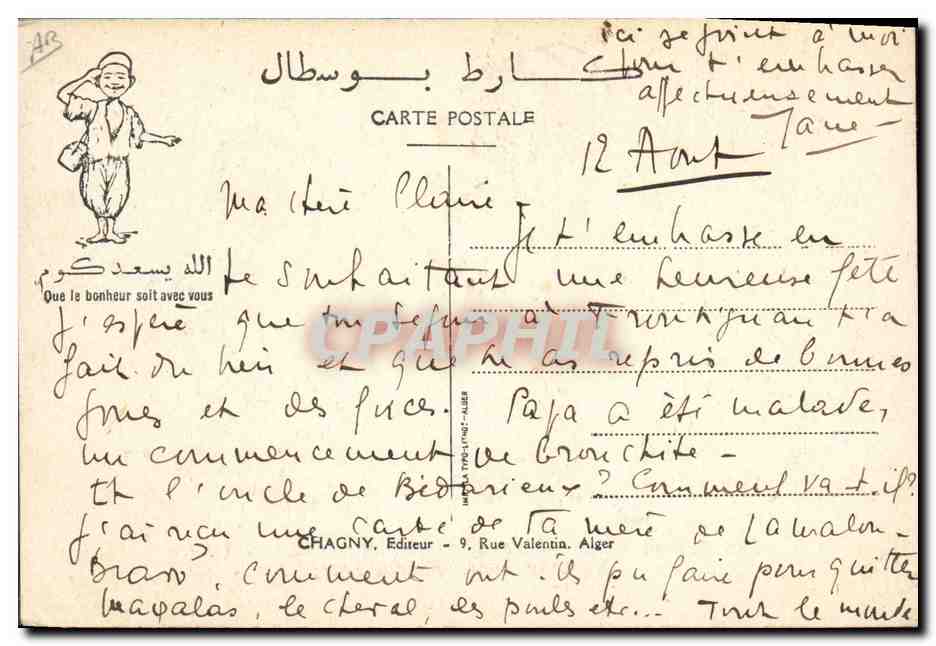 AB
كارط بوسطال
CARTE POSTALE
الله يسعدكوم
Que le bonheur soit avec vous
12 Août
Ma chère Claire -
Je t'embrasse en
te souhaitant une heureuse fête
J'espère que ton séjour à Frontignan t'a
fait du bien et que tu as repris de bonnes
joues et des forces. Papa a été malade,
un commencement de bronchite -
Et l'oncle de Bédarieux ? Comment va-t-il ?
J'ai reçu une carte de ta mère de Lamalou -
Bravo, comment ont-ils pu faire pour quitter
Magalas, le cheval, les poules etc... Tout le monde
ici se joint à moi
pour t'embrasser
affectueusement
IMP. LA TYPO-LITHO - ALGER
CHAGNY, Editeur - 9, Rue Valentin, Alger
CPAPHIL